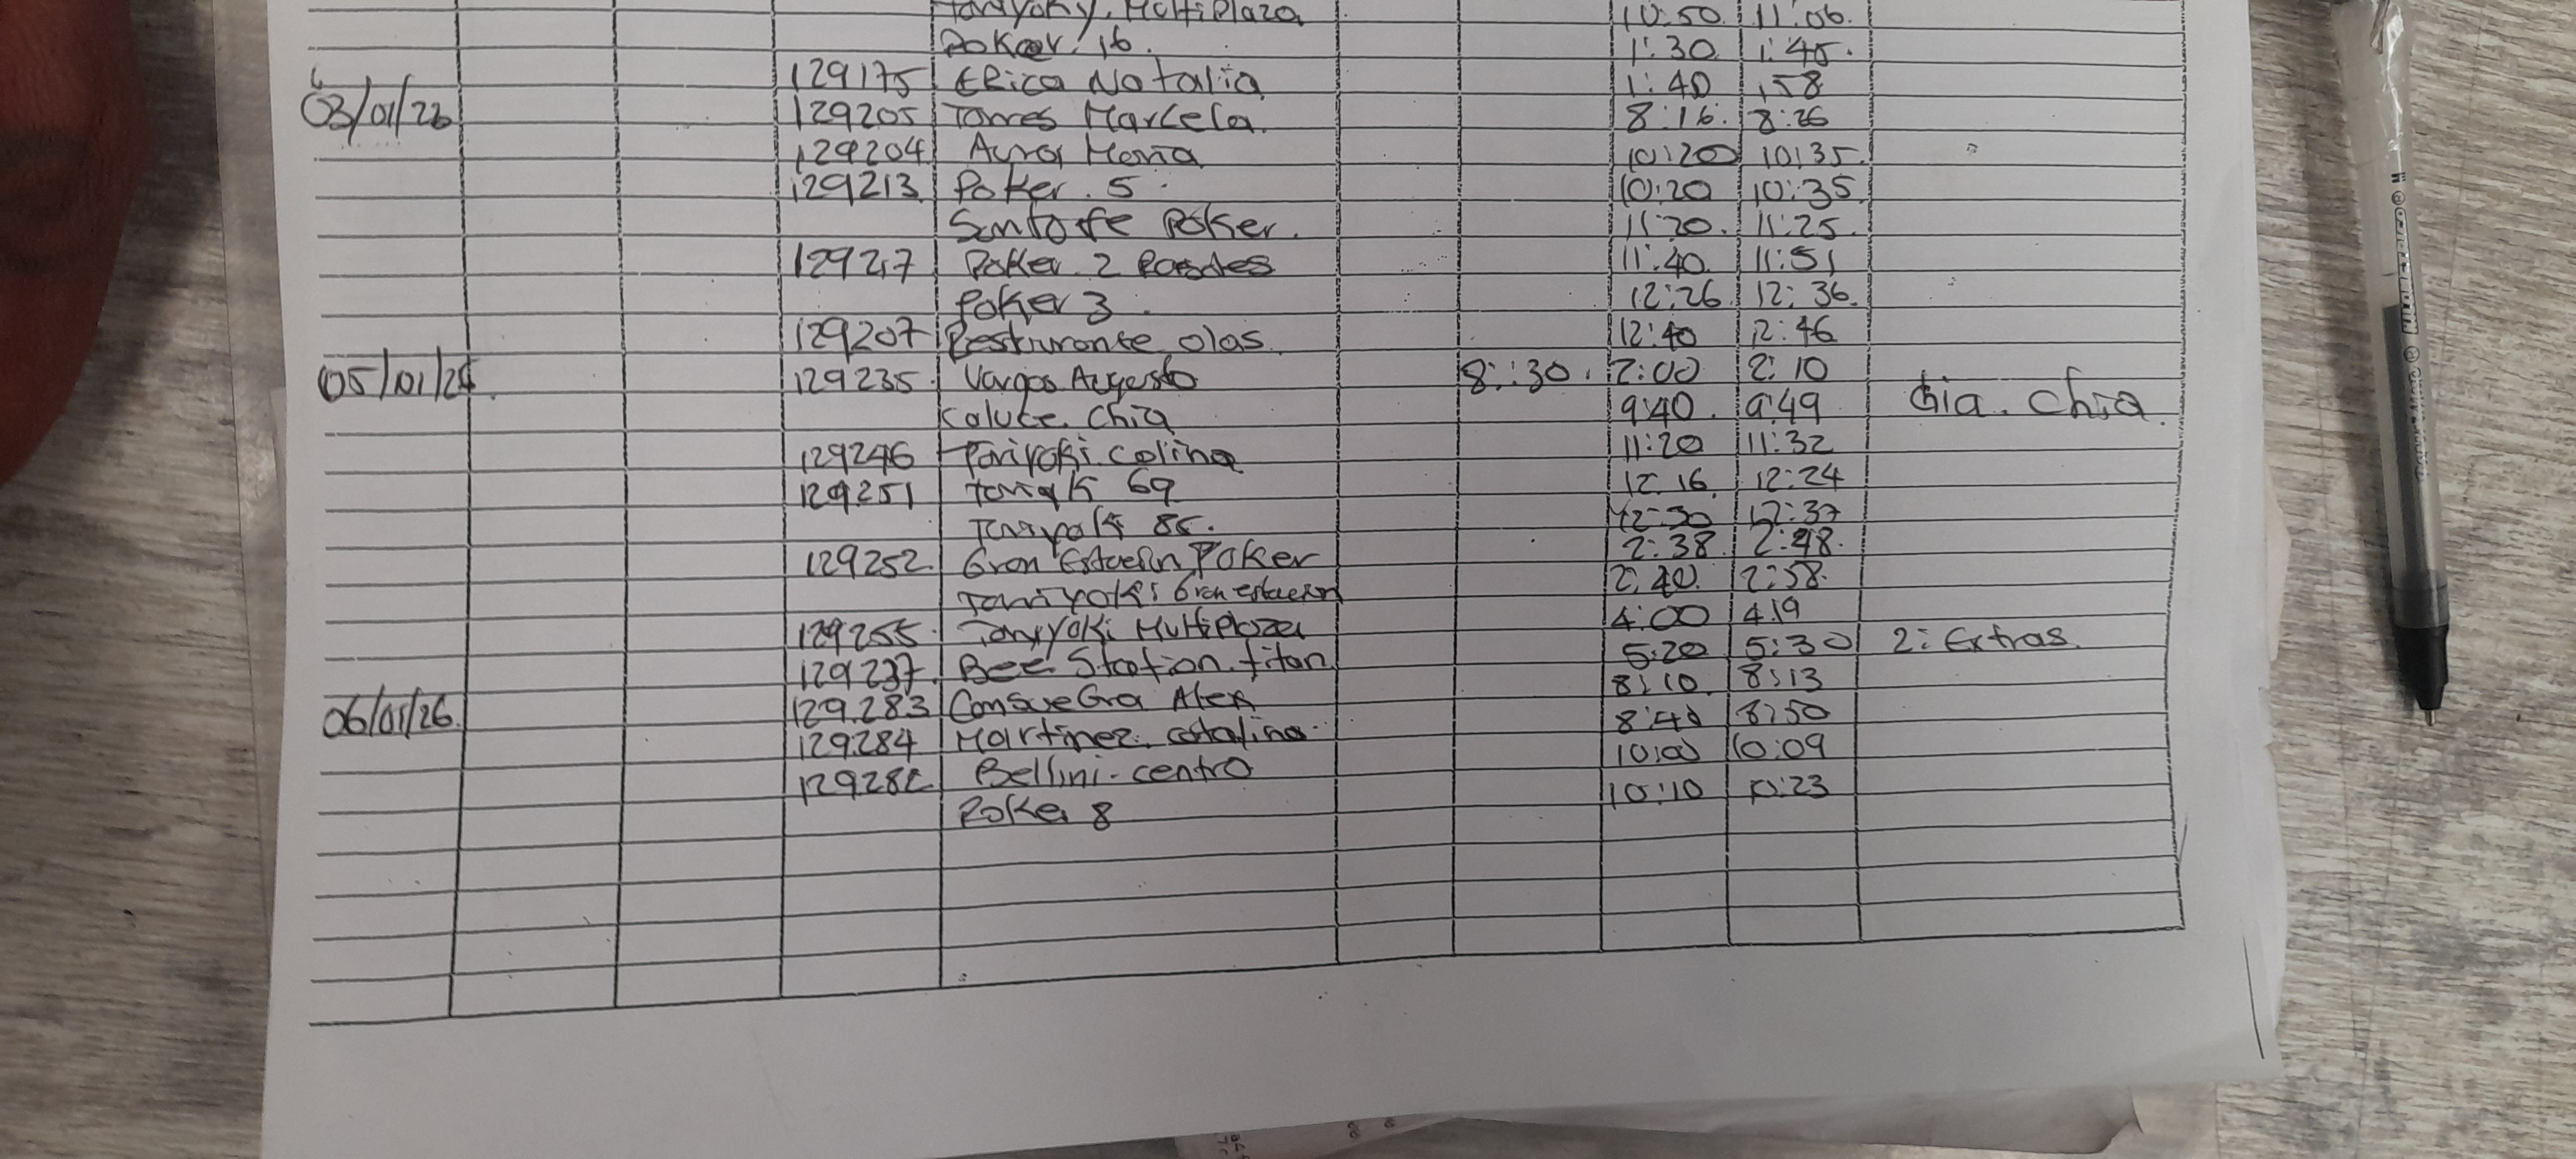 Taniyoky. Multiplaza 10:50 11:06.
Poker 16. 1:30 1:45.
129175 Erica Natalia 1:40 1,58
03/01/26 129205 Torres Marcela. 8:16. 8:26
129204 Aura Maria 10:20 10:35.
129213 Poker. 5. 10:20 10:35
Santa fe Poker. 11:20. 11:25.
129217 Poker 2 11:40. 11:51
Poker 3. 12:26 12:36.
129207 Resturante olas. 12:40 12:46
05/01/26 129235. Vargas Augusto 8:30. 2:00 2:10
Caluce. Chia 9:40. 9:49 Gia. Chia.
129246 Taniyoki. Colina 11:20 11:32
129251 69 12.16 12:24
86. 12:30 12:37
129252. Gran Estacion Poker 2:38. 2:48.
Taniyoki Gran estacion 2:40. 2:58.
129255. Taniyoki Multiplaza 4:00 4.19
129237. Bee Station. titan 5:20 5:30 2: Extras.
06/01/26. 129.283 ConsueGra Alex 8:10. 8:13
129.284 Martinez. catalina. 8:40 8:50
129282 Bellini-centro 10:00 10:09
Poker 8 10:10 10:23